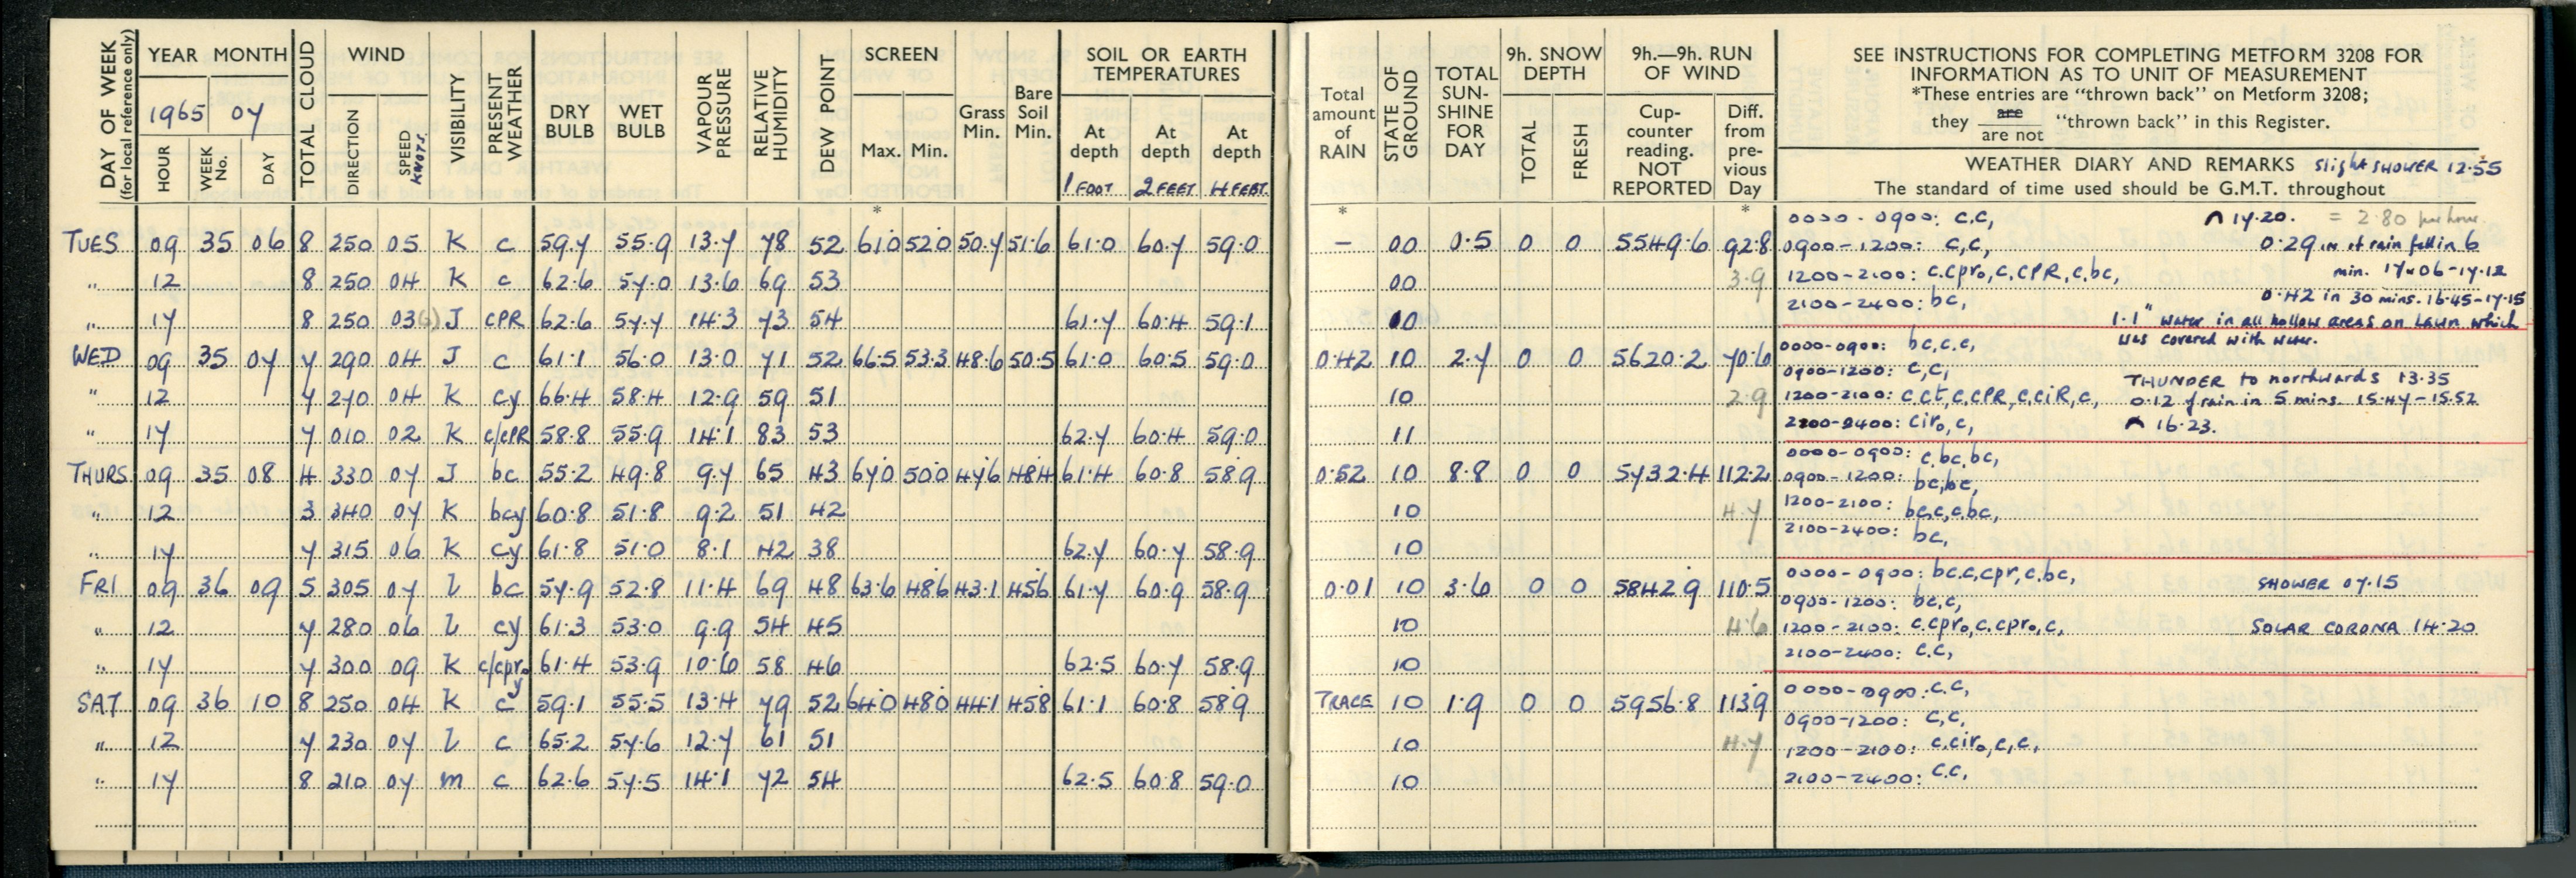 DAY OF WEEK (for local reference only)
YEAR MONTH
1965 07
HOUR WEEK No. DAY
TOTAL CLOUD
WIND
DIRECTION SPEED KNOTS.
VISIBILITY
PRESENT WEATHER
DRY BULB
WET BULB
VAPOUR PRESSURE
RELATIVE HUMIDITY
DEW POINT
SCREEN
Max. Min.
Grass Min.
Bare Soil Min.
SOIL OR EARTH TEMPERATURES
At depth At depth At depth
1 FOOT 2 FEET 4 FEET
Total amount of RAIN
STATE OF GROUND
TOTAL SUN-SHINE FOR DAY
9h. SNOW DEPTH
TOTAL FRESH
9h.—9h. RUN OF WIND
Cup-counter reading. NOT REPORTED
Diff. from pre-vious Day
SEE INSTRUCTIONS FOR COMPLETING METFORM 3208 FOR
INFORMATION AS TO UNIT OF MEASUREMENT
*These entries are "thrown back" on Metform 3208;
they are / are not "thrown back" in this Register.
WEATHER DIARY AND REMARKS Slight SHOWER 12.55
The standard of time used should be G.M.T. throughout
* * *
TUES 09 35 06 8 250 05 K c 59.7 55.9 13.7 78 52 61.0 52.0 50.7 51.6 61.0 60.7 59.0 — 00 0.5 0 0 5549.6 92.8
" 12 8 250 04 K c 62.6 57.0 13.6 69 53 00 3.9
" 17 8 250 03(6) J cPR 62.6 57.7 14.3 73 54 61.7 60.4 59.1 10
0000 - 0900: c.c,
0900-1200: c,c,
1200-2100: c.cpr₀,c.cPR,c.bc,
2100-2400: bc,
⌒ 17.20. = 2.80 per hour.
0.29 in of rain fell in 6
min. 17.06-17.12
0.42 in 30 mins. 16.45-17.15
1.1" water in all hollow areas on Lawn which
was covered with water.
WED 09 35 07 7 290 04 J c 61.1 56.0 13.0 71 52 66.5 53.3 48.6 50.5 61.0 60.5 59.0 0.42 10 2.7 0 0 5620.2 70.6
" 12 7 270 04 K cy 66.4 58.4 12.9 59 51 10 2.9
" 17 7 010 02 K c/cPR 58.8 55.9 14.1 83 53 62.7 60.4 59.0 11
0000-0900: bc,c.c,
0900-1200: c,c,
1200-2100: c.ct,c,cPR,c,ciR,c,
2100-2400: cir₀,c,
THUNDER to northwards 13.35
0.12 of rain in 5 mins. 15.47-15.52
⌒ 16.23.
THURS 09 35 08 4 330 07 J bc 55.2 49.8 9.7 65 43 67.0 50.0 47.6 48.4 61.4 60.8 58.9 0.52 10 8.8 0 0 5732.4 112.2
" 12 3 340 07 K bcy 60.8 51.8 9.2 51 42 10 4.7
" 17 7 315 06 K cy 61.8 51.0 8.1 42 38 62.7 60.7 58.9 10
0000-0900: c.bc,bc,
0900-1200: bc,bc,
1200-2100: bc,c,c,bc,
2100-2400: bc,
FRI 09 36 09 5 305 07 l bc 57.9 52.8 11.4 69 48 63.6 48.6 43.1 45.6 61.7 60.9 58.9 0.01 10 3.6 0 0 5842.9 110.5
" 12 7 280 06 l cy 61.3 53.0 9.9 54 45 10 4.6
" 17 7 300 09 K c/cpr₀y 61.4 53.9 10.6 58 46 62.5 60.7 58.9 10
0000-0900: bc.c,cpr,c,bc,
0900-1200: bc,c,
1200-2100: c.cpr₀,c.cpr₀,c,
2100-2400: c.c,
SHOWER 07.15
SOLAR CORONA 14.20
SAT 09 36 10 8 250 04 K c 59.1 55.5 13.4 79 52 64.0 48.0 44.1 45.8 61.1 60.8 58.9 TRACE 10 1.9 0 0 5956.8 113.9
" 12 7 230 07 l c 65.2 57.6 12.7 61 51 10 4.7
" 17 8 210 07 m c 62.6 57.5 14.1 72 54 62.5 60.8 59.0 10
0000-0900: c.c,
0900-1200: c,c,
1200-2100: c.cir₀,c,c,
2100-2400: c.c,